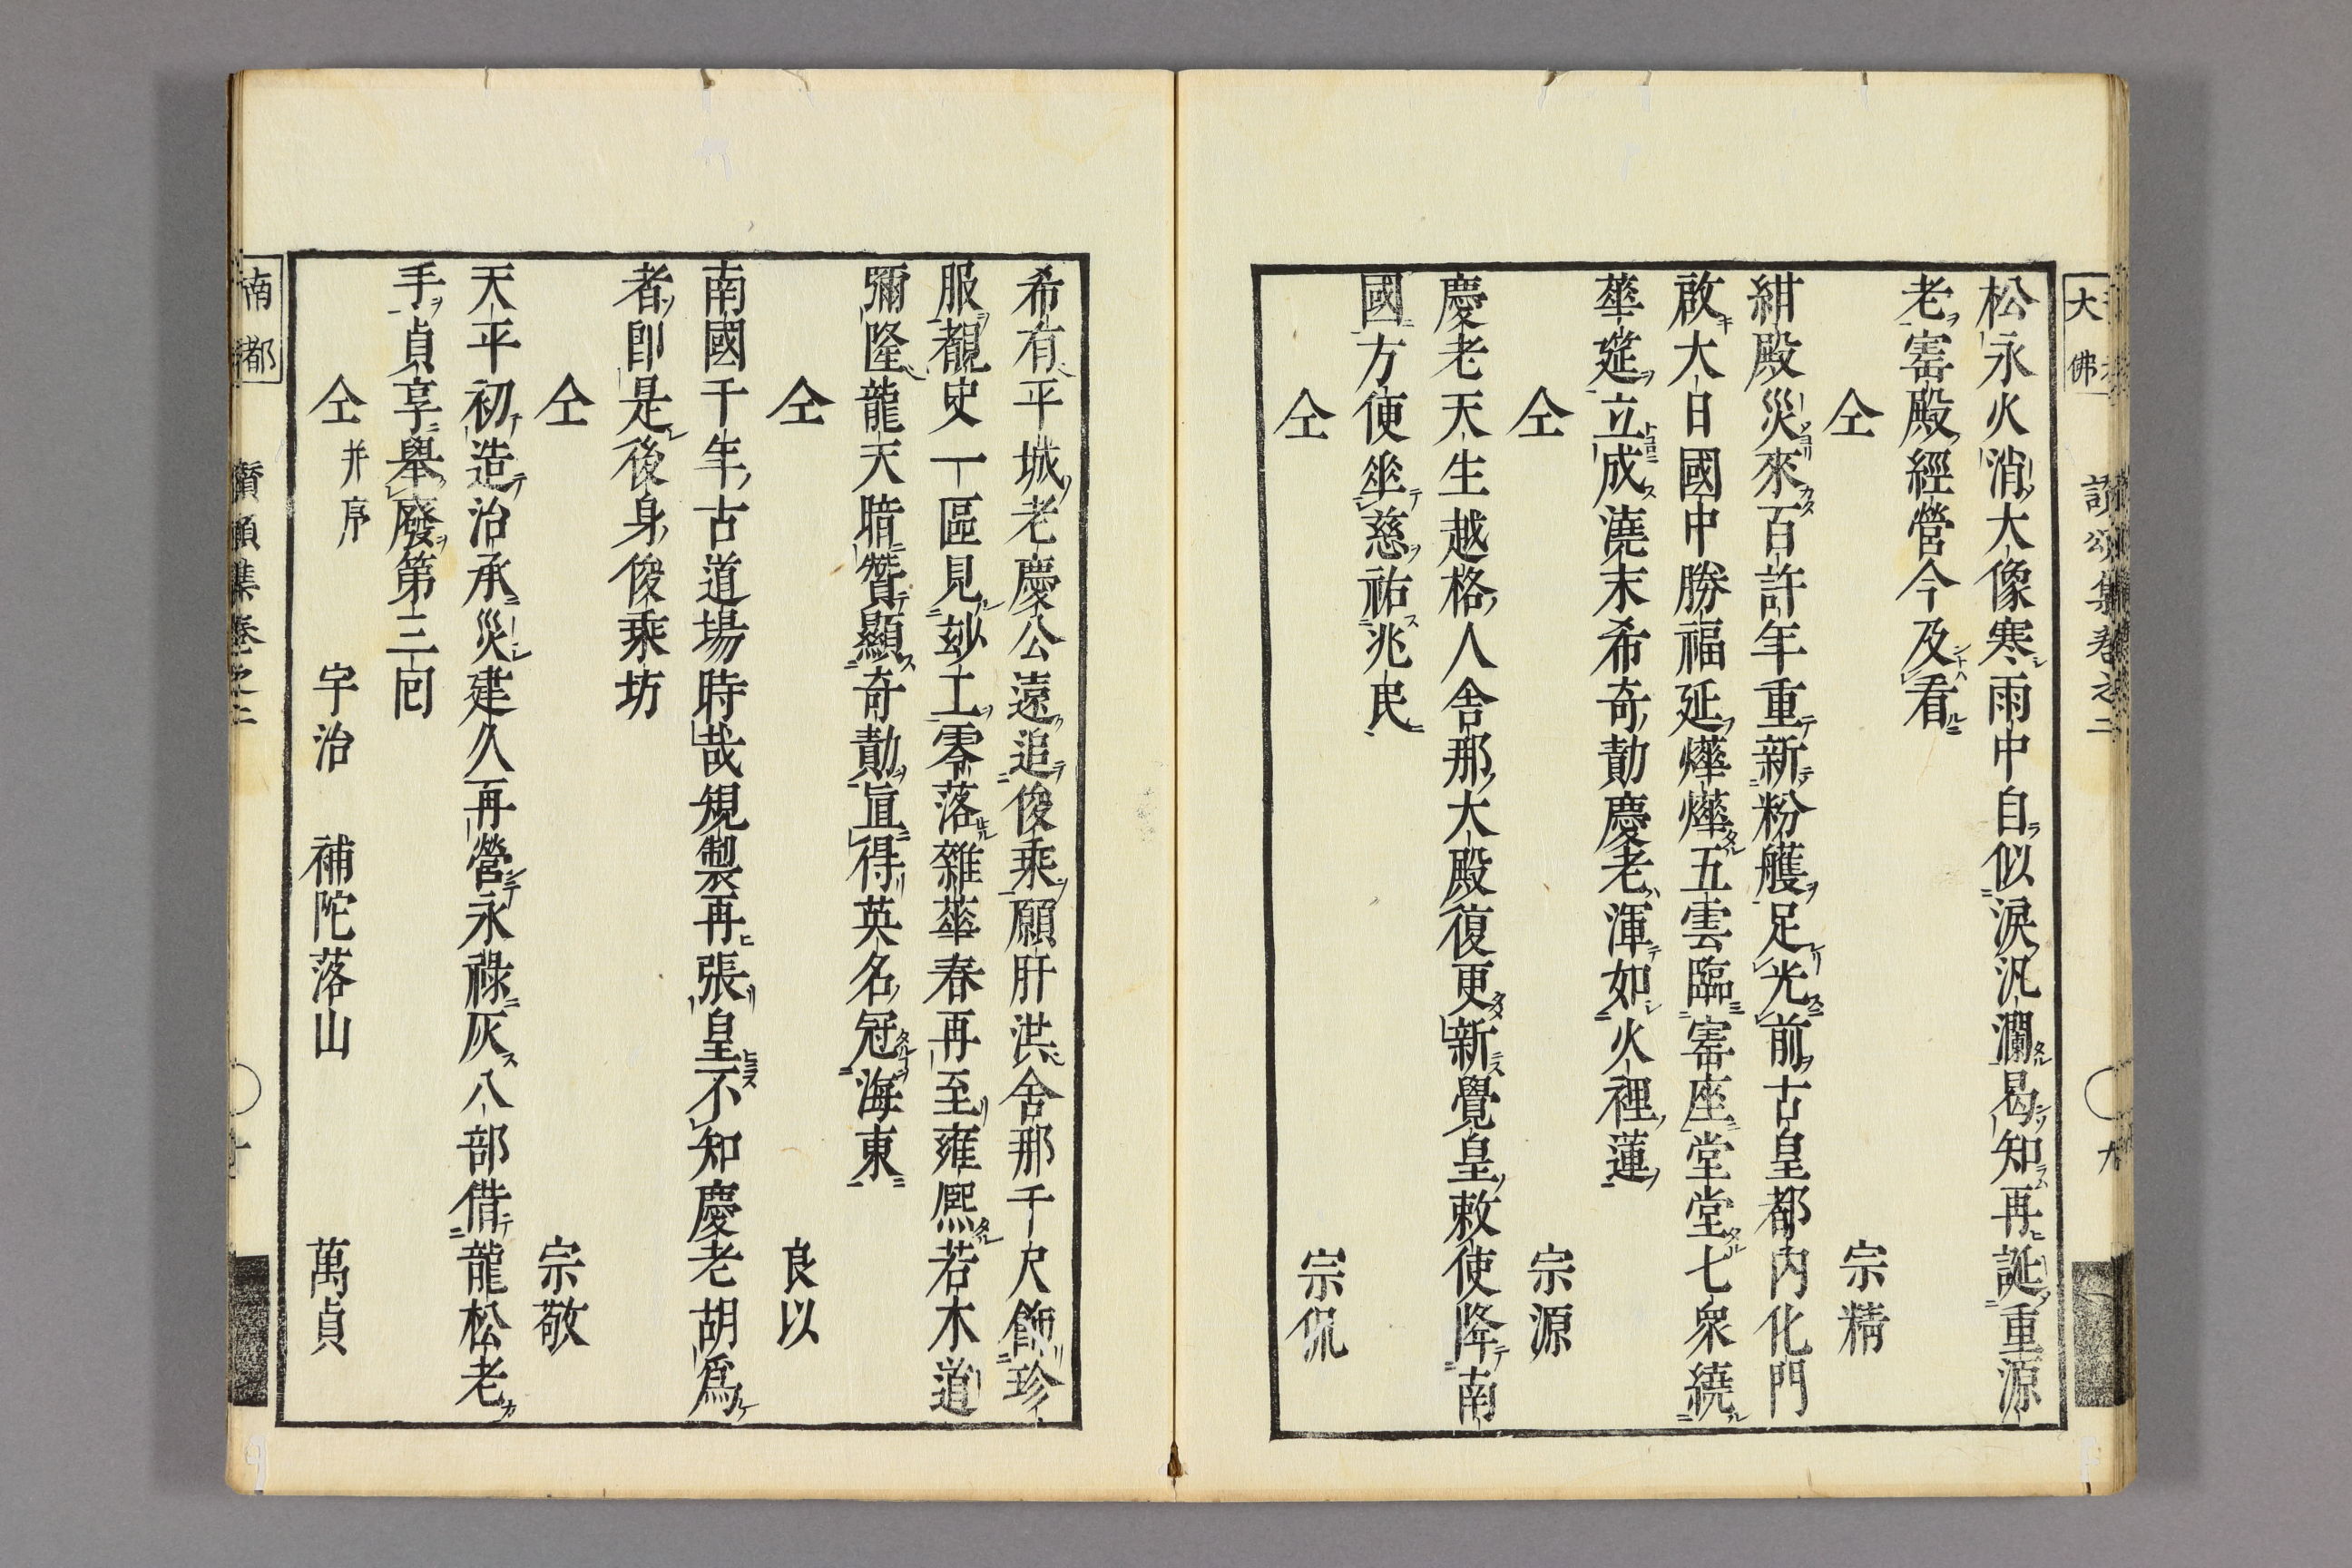 大佛 讃頌集卷之二 九
松永火消大像寒雨中自似淚汎瀾曷知再誕重源
老寄殿經營今及看
仝 宗精
紺殿災來百許年重新粉雘足光前古皇都内化門
啟大日國中勝福延燁燁五雲臨寶座堂堂七衆繞
華筵立成澆末希奇勣慶老渾如火裡蓮
仝 宗源
慶老天生越格人舍那大殿復更新覺皇敕使降南
國方便垂慈祐兆民
仝 宗侃
希有平城老慶公遠追俊乘願肝洪舍那千尺飾珍
服觀史一區見玅土零落雜華春再至雍熙若木道
彌隆龍天暗贊顯奇勣宜得英名冠海東
仝 良以
南國千年古道場時哉規製再張皇不知慶老胡爲
者即是後身俊乘坊
仝 宗敬
天平初造治承災建久再營永祿灰八部借龍松老
手貞享擧廢第三回
仝 并序 宇治 補陀落山 萬貞
南都 讃頌集卷之二